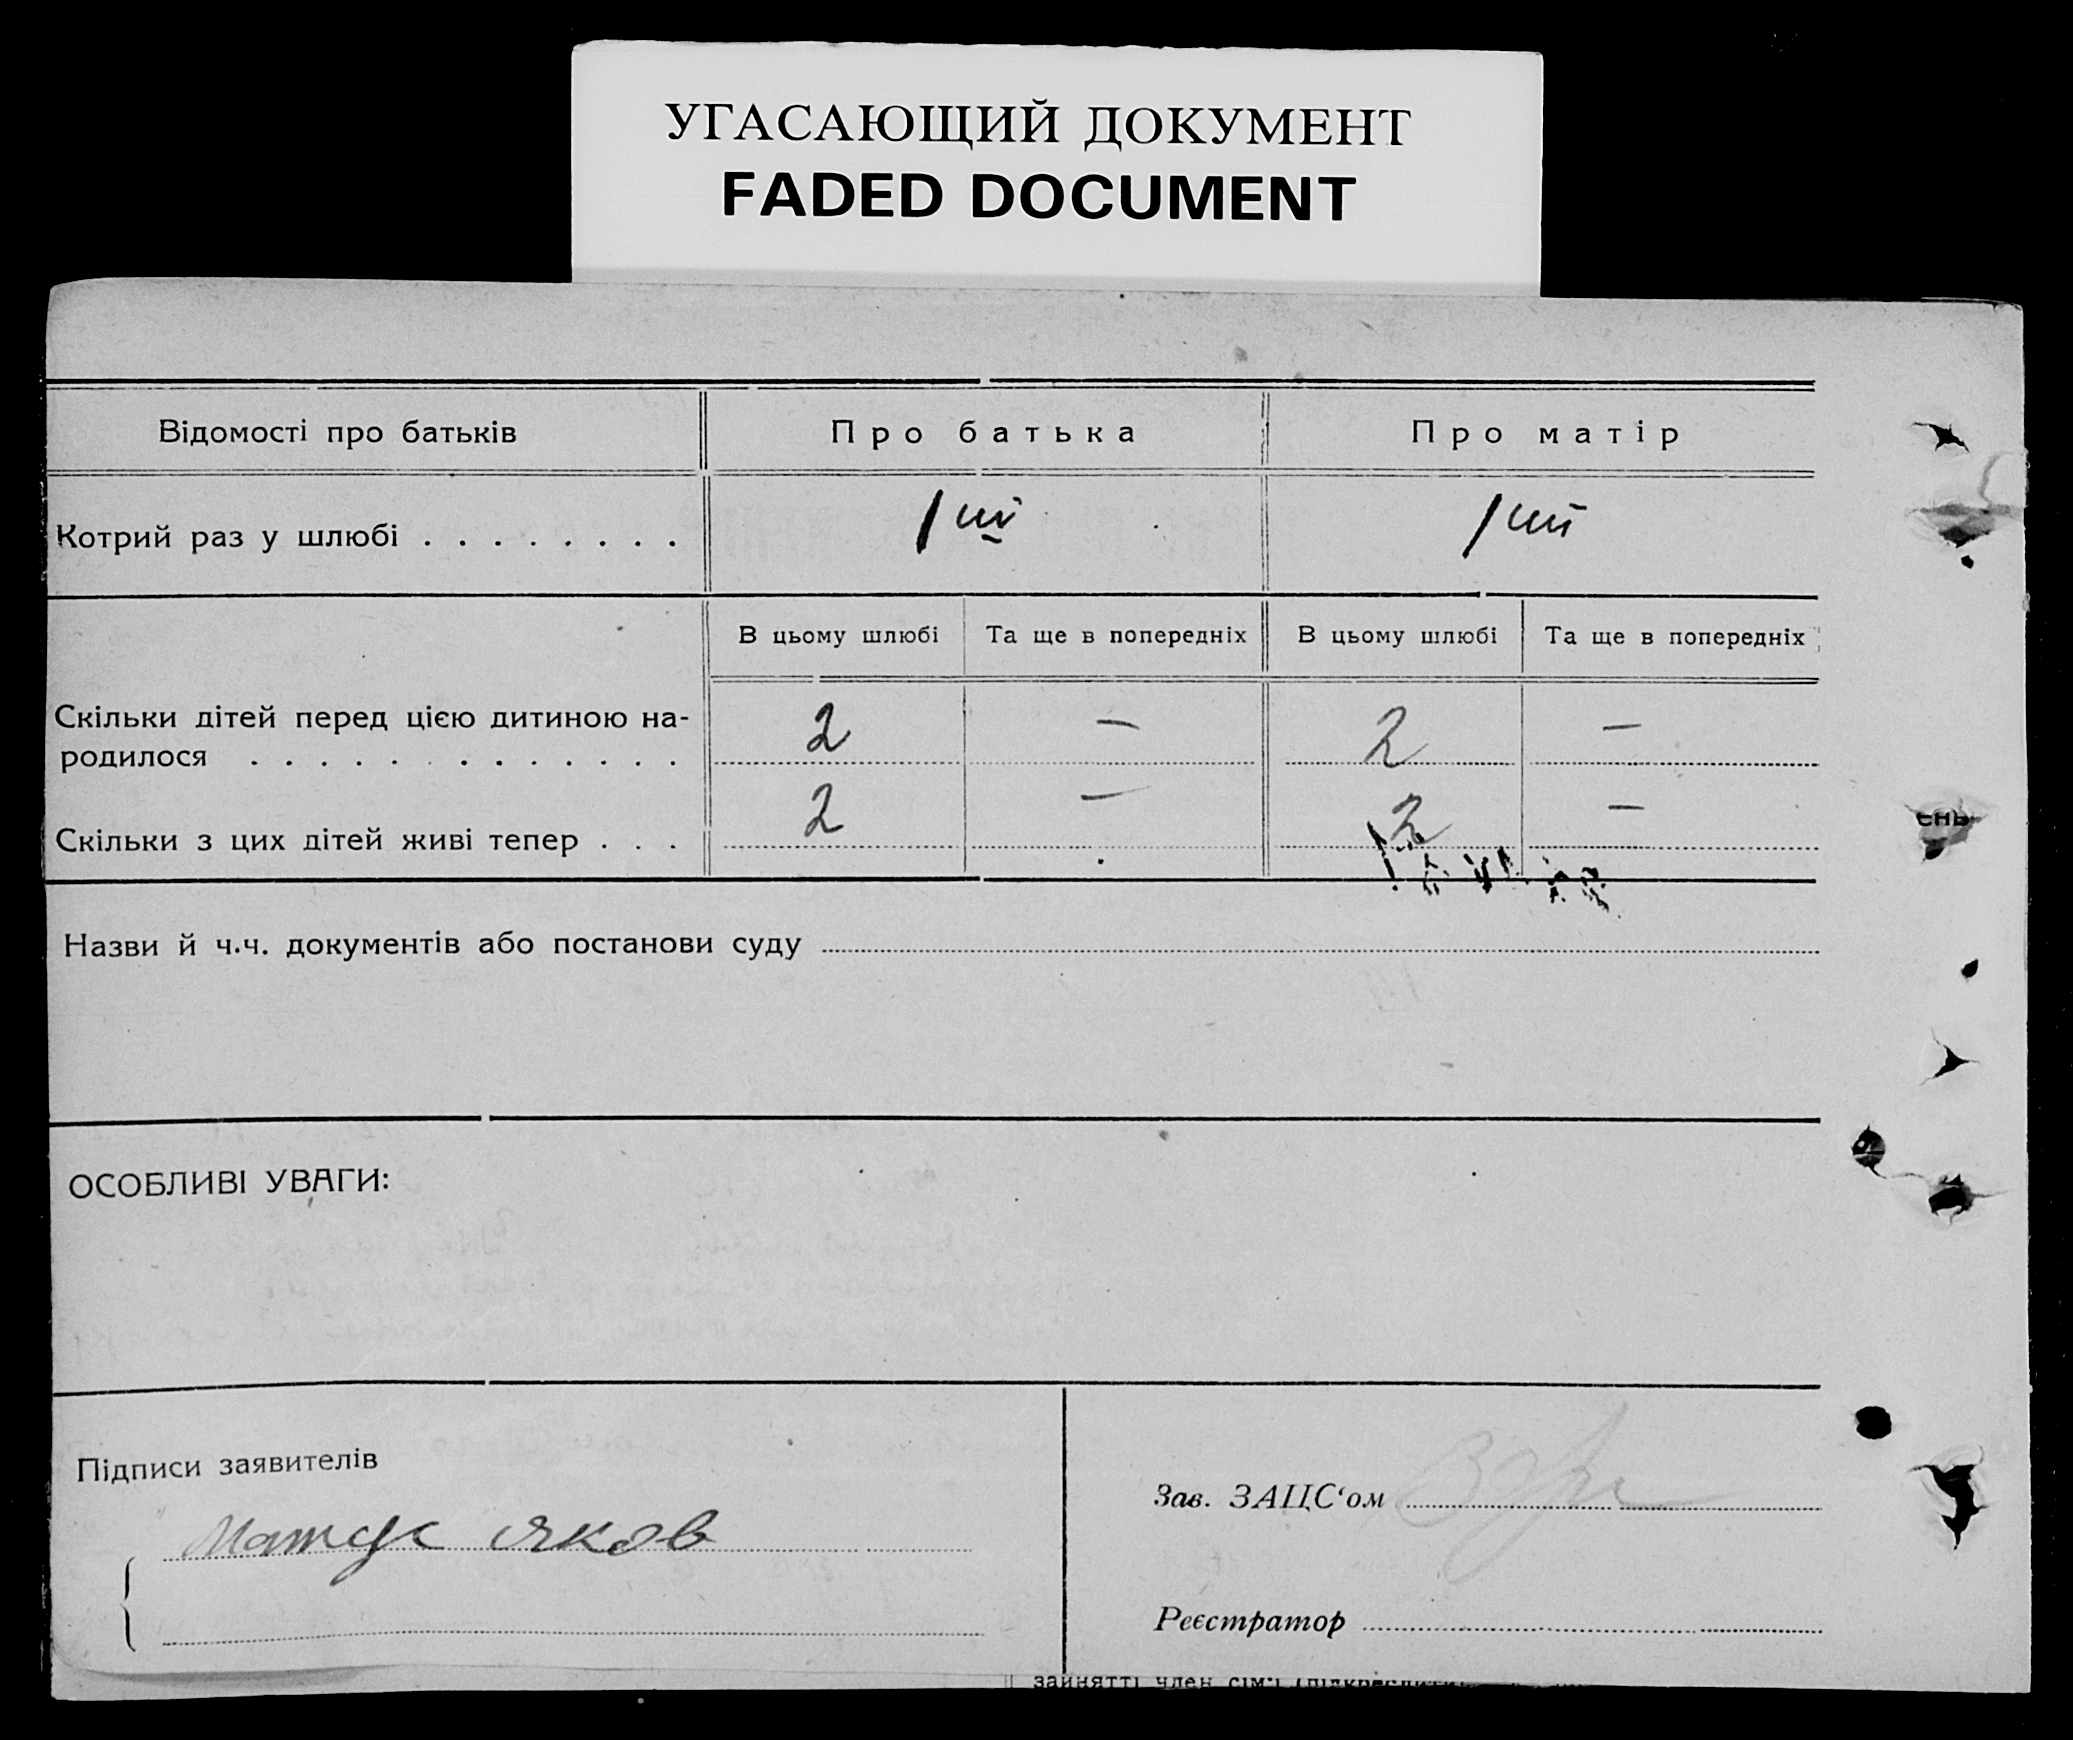 УГАСАЮЩИЙ ДОКУМЕНТ
FADED DOCUMENT
Відомості про батьків Про батька Про матір
Котрий раз у шлюбі . . . . . . . . 1ий 1ий
В цьому шлюбі Та ще в попередніх В цьому шлюбі Та ще в попередніх
Скільки дітей перед цією дитиною на-
родилося . . . . . . . . . . . . . 2 — 2 —
Скільки з цих дітей живі тепер . . . 2 — 2 —
ень
Назви й ч.ч. документів або постанови суду
ОСОБЛИВІ УВАГИ:
Підписи заявителів
Зав. ЗАЦС‘ом
яков
Реєстратор
зайнятті член сім'ї